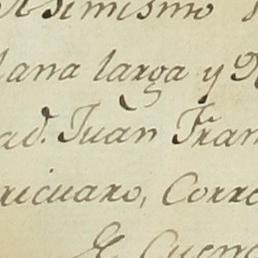 simismo
lana larga y
ad. Juan Fran
ricuaro, Corre